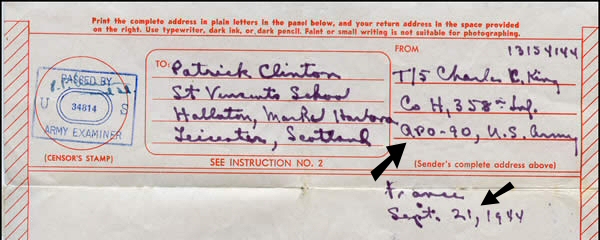 Print the complete address in plain letters in the panel below, and your return address in the space provided
on the right. Use typewriter, dark ink, or dark pencil. Faint or small writing is not suitable for photographing.
PASSED BY
U S
34814
ARMY EXAMINER
(CENSOR'S STAMP)
TO:
Patrick Clinton
St Vincents School
Hallaton, Market Harboro
Leicester, Scotland
SEE INSTRUCTION NO. 2
FROM
13154144
T/5 Charles C. King
Co H, 358th Inf.
APO-90, U.S. Army
(Sender's complete address above)
France
Sept. 21, 1944